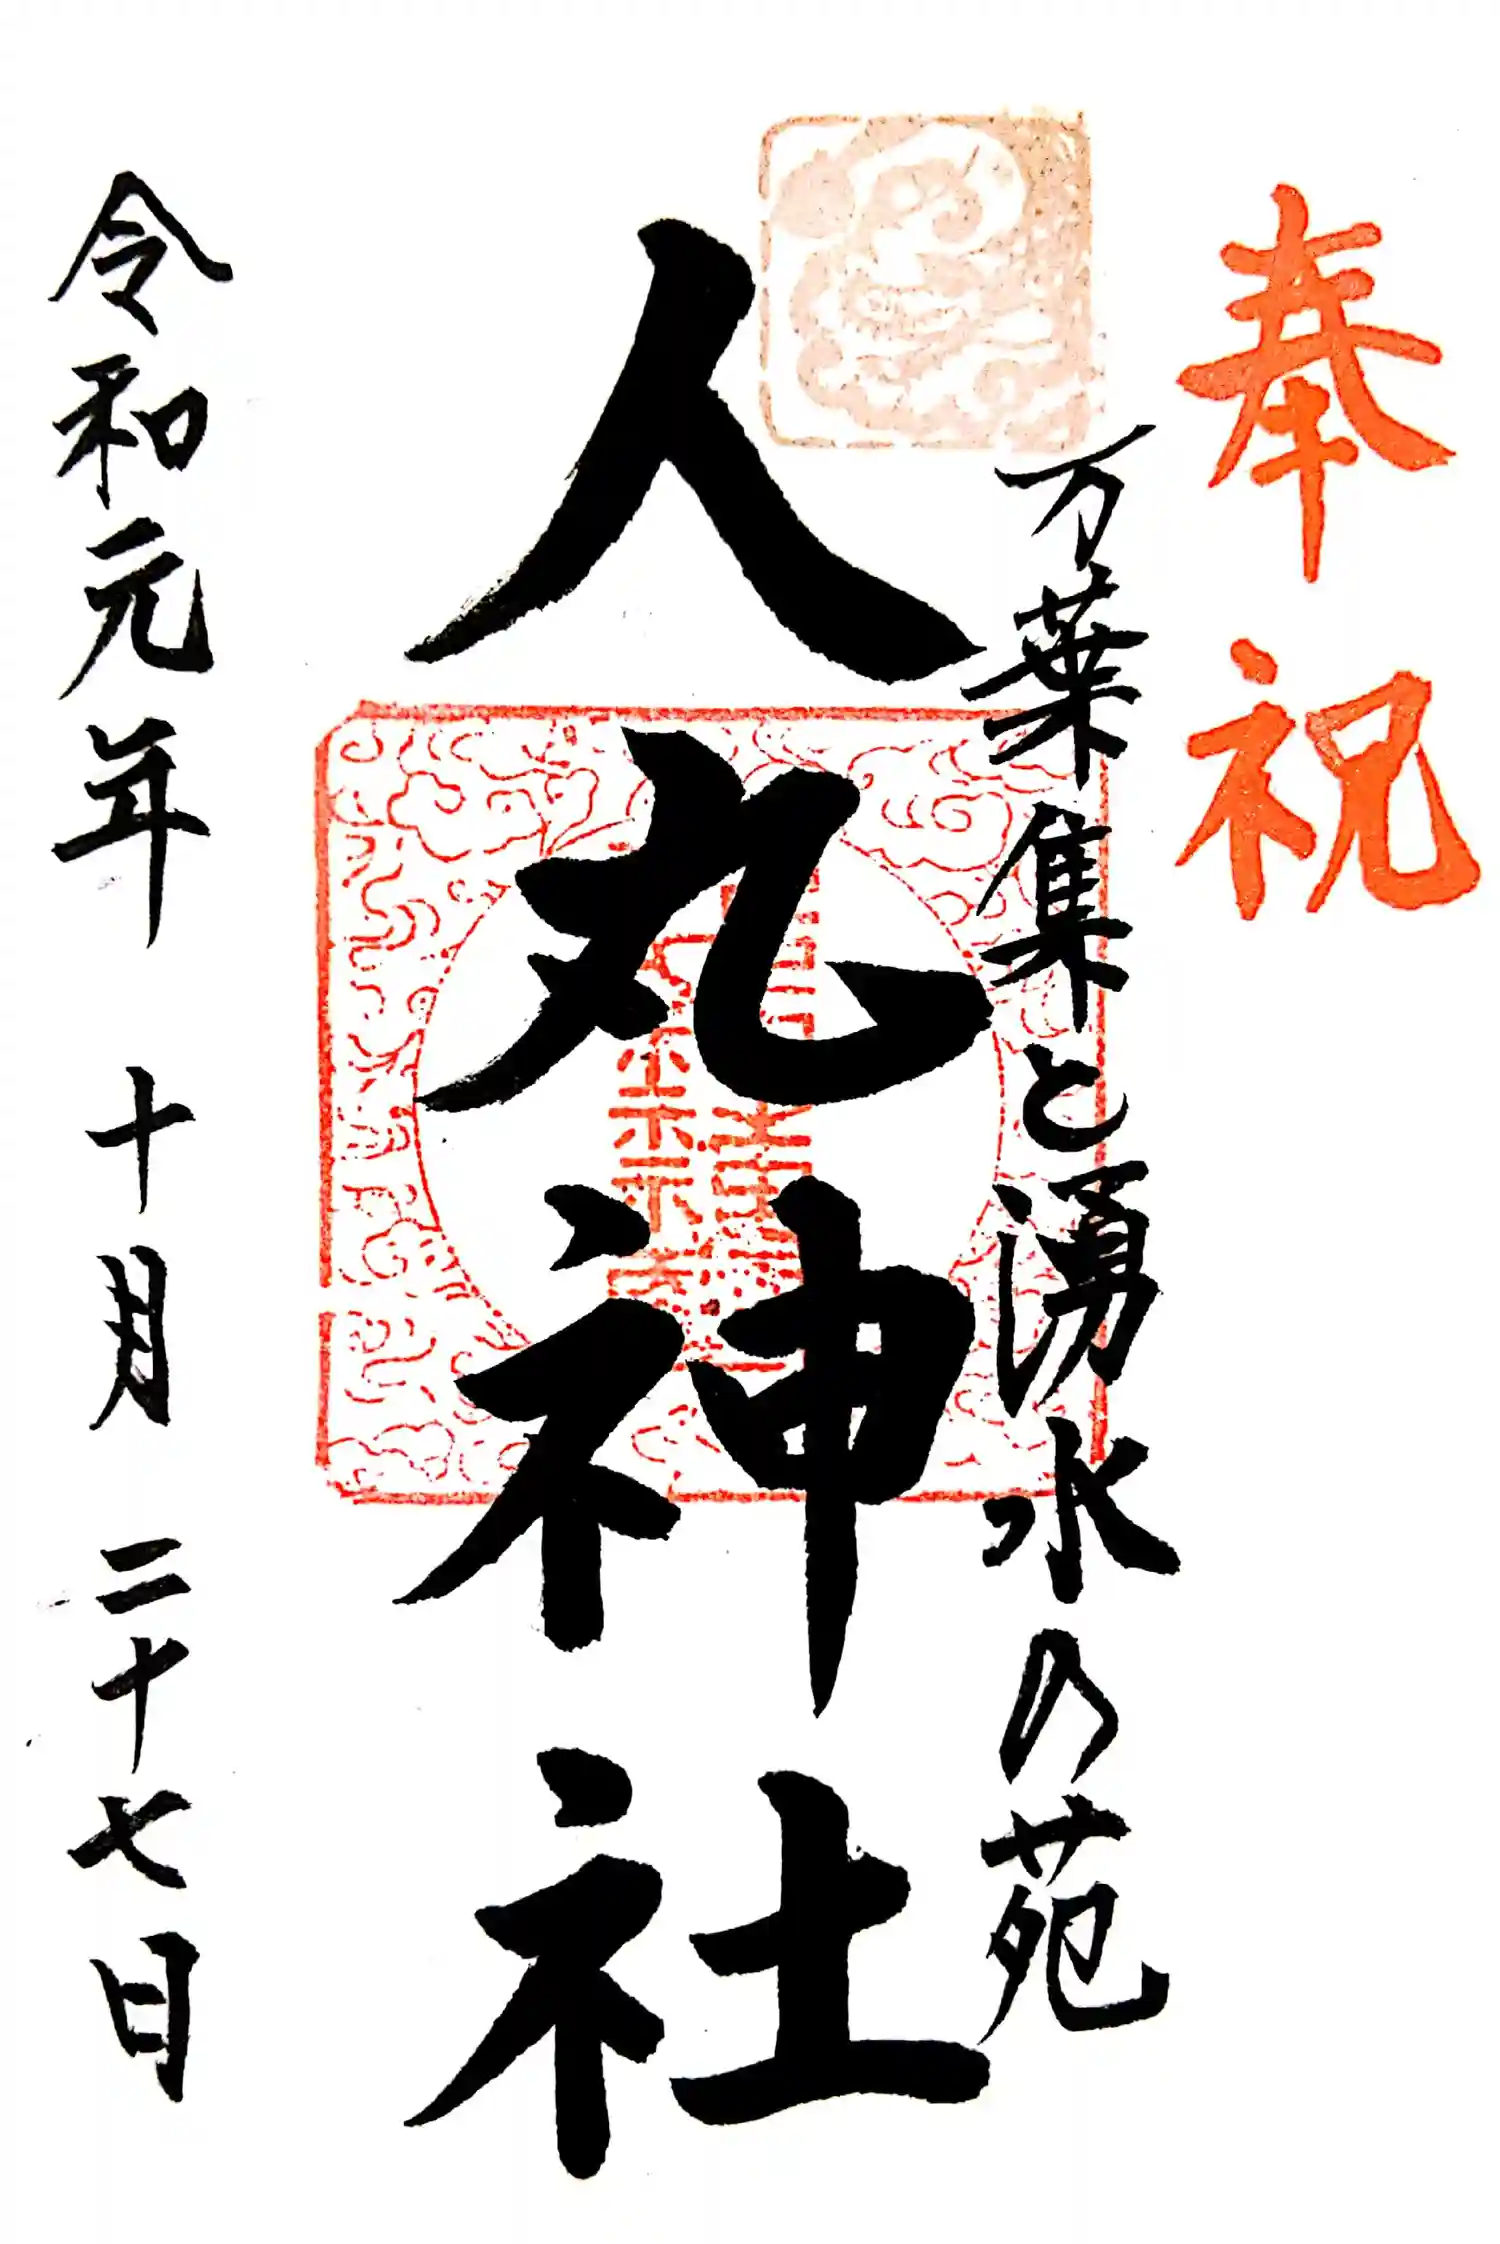 奉祝
万葉集と湧水の苑
人丸神社
令和元年 十月 二十七日